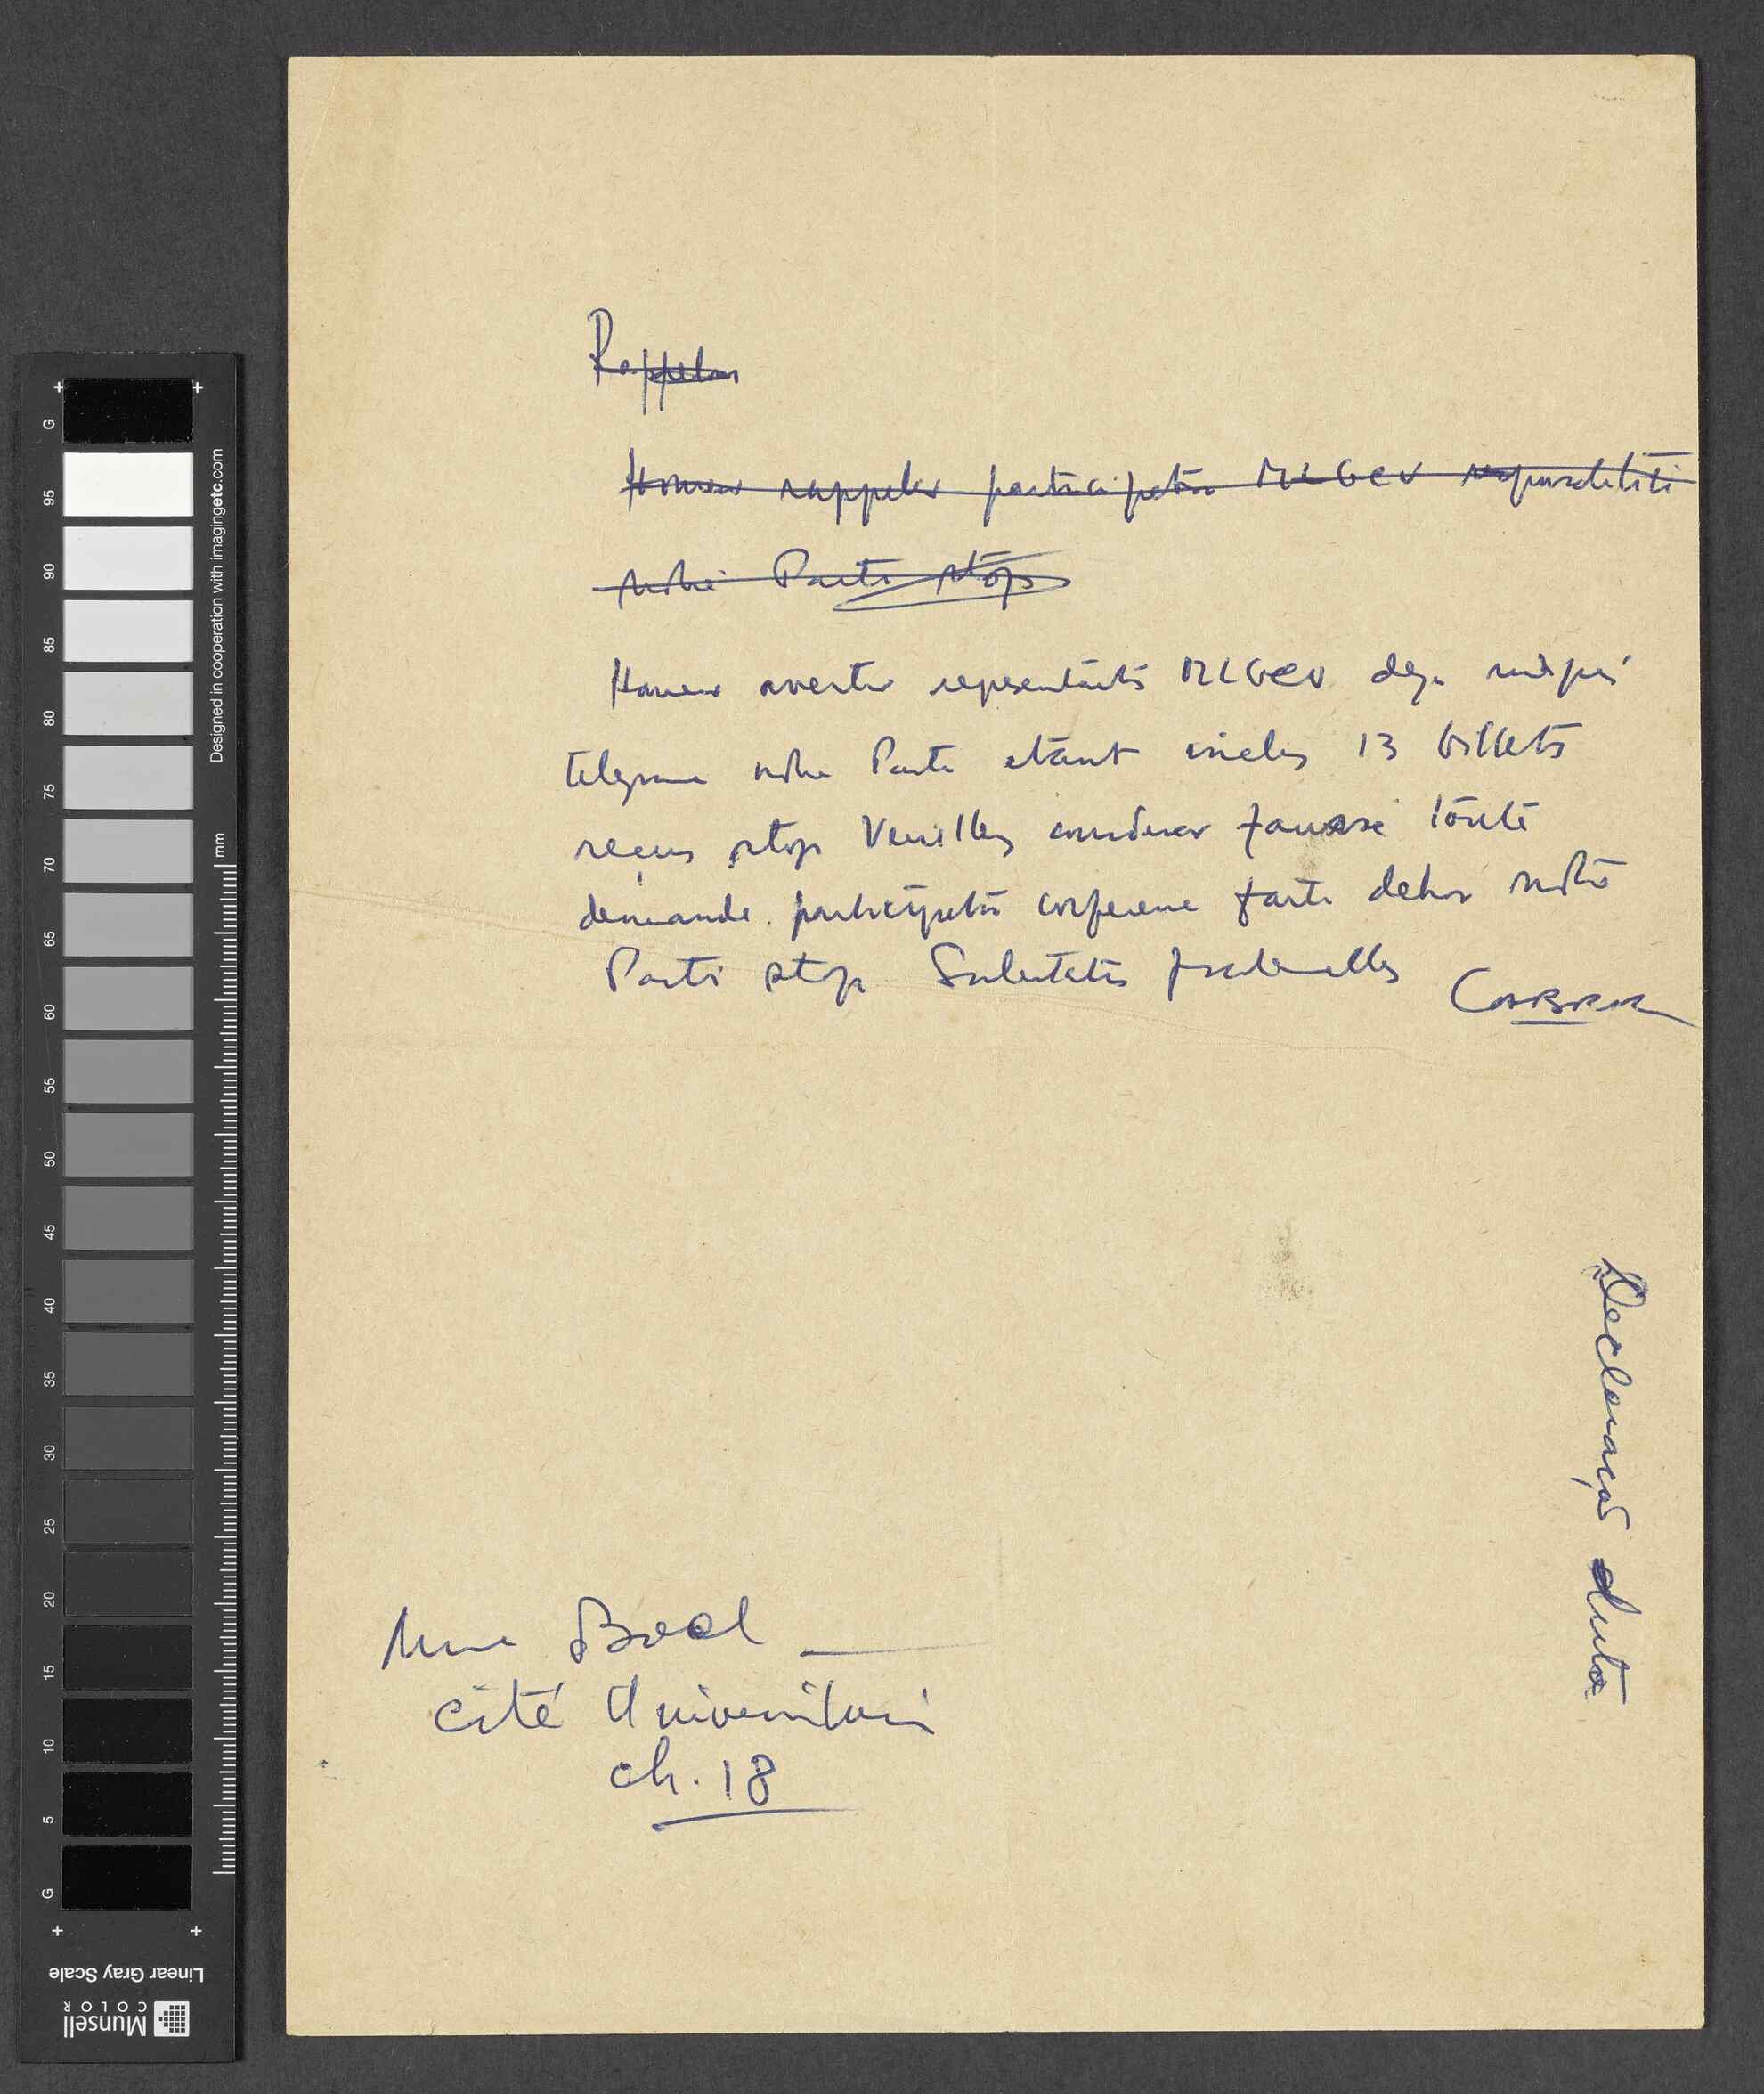 Rappeler
Honneur rappeler participation MLGCV responsabilité
notre Parti stop
Honneur avertir représentants MLGCV deja indiqués
telegramme notre Parti étant inclus 13 billets
reçus stop Veuillez considerer fausse toute
demande participation conference faite dehors notre
Parti stop Salutations fraternelles CABRAL
Declaração
Mme Boal
Cité Universitaire
ch. 18
G
95
90
85
80
75
70
65
60
55
50
45
40
35
30
25
20
15
10
5
G
mm
Designed in cooperation with imagingetc.com
Linear Gray Scale
Munsell
COLOR